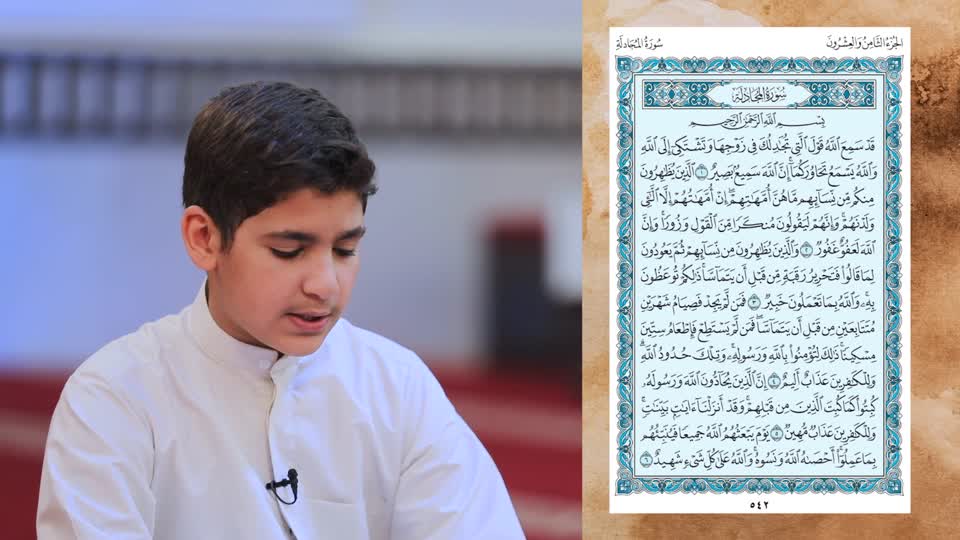 الجزء الثامن والعشرون
سورة المجادلة
سورة المجادلة
بسم الله الرحمن الرحيم
قَدْ سَمِعَ ٱللَّهُ قَوْلَ ٱلَّتِي تُجَٰدِلُكَ فِي زَوْجِهَا وَتَشْتَكِيٓ إِلَى ٱللَّهِ
وَٱللَّهُ يَسْمَعُ تَحَاوُرَكُمَآ إِنَّ ٱللَّهَ سَمِيعٌۢ بَصِيرٌ ١ ٱلَّذِينَ يُظَٰهِرُونَ
مِنكُم مِّن نِّسَآئِهِم مَّا هُنَّ أُمَّهَٰتِهِمْ إِنْ أُمَّهَٰتُهُمْ إِلَّا ٱلَّٰٓـِٔي
وَلَدْنَهُمْ وَإِنَّهُمْ لَيَقُولُونَ مُنكَرًا مِّنَ ٱلْقَوْلِ وَزُورًا وَإِنَّ
ٱللَّهَ لَعَفُوٌّ غَفُورٌ ٢ وَٱلَّذِينَ يُظَٰهِرُونَ مِن نِّسَآئِهِمْ ثُمَّ يَعُودُونَ
لِمَا قَالُوا۟ فَتَحْرِيرُ رَقَبَةٍ مِّن قَبْلِ أَن يَتَمَآسَّا ذَٰلِكُمْ تُوعَظُونَ
بِهِۦ وَٱللَّهُ بِمَا تَعْمَلُونَ خَبِيرٌ ٣ فَمَن لَّمْ يَجِدْ فَصِيَامُ شَهْرَيْنِ
مُتَتَابِعَيْنِ مِن قَبْلِ أَن يَتَمَآسَّا فَمَن لَّمْ يَسْتَطِعْ فَإِطْعَامُ سِتِّينَ
مِسْكِينًا ذَٰلِكَ لِتُؤْمِنُوا۟ بِٱللَّهِ وَرَسُولِهِۦ وَتِلْكَ حُدُودُ ٱللَّهِ
وَلِلْكَٰفِرِينَ عَذَابٌ أَلِيمٌ ٤ إِنَّ ٱلَّذِينَ يُحَآدُّونَ ٱللَّهَ وَرَسُولَهُۥ
كُبِتُوا۟ كَمَا كُبِتَ ٱلَّذِينَ مِن قَبْلِهِمْ وَقَدْ أَنزَلْنَآ ءَايَٰتٍۭ بَيِّنَٰتٍ
وَلِلْكَٰفِرِينَ عَذَابٌ مُّهِينٌ ٥ يَوْمَ يَبْعَثُهُمُ ٱللَّهُ جَمِيعًا فَيُنَبِّئُهُم
بِمَا عَمِلُوٓا۟ أَحْصَىٰهُ ٱللَّهُ وَنَسُوهُ وَٱللَّهُ عَلَىٰ كُلِّ شَيْءٍ شَهِيدٌ ٦
٥٤٢